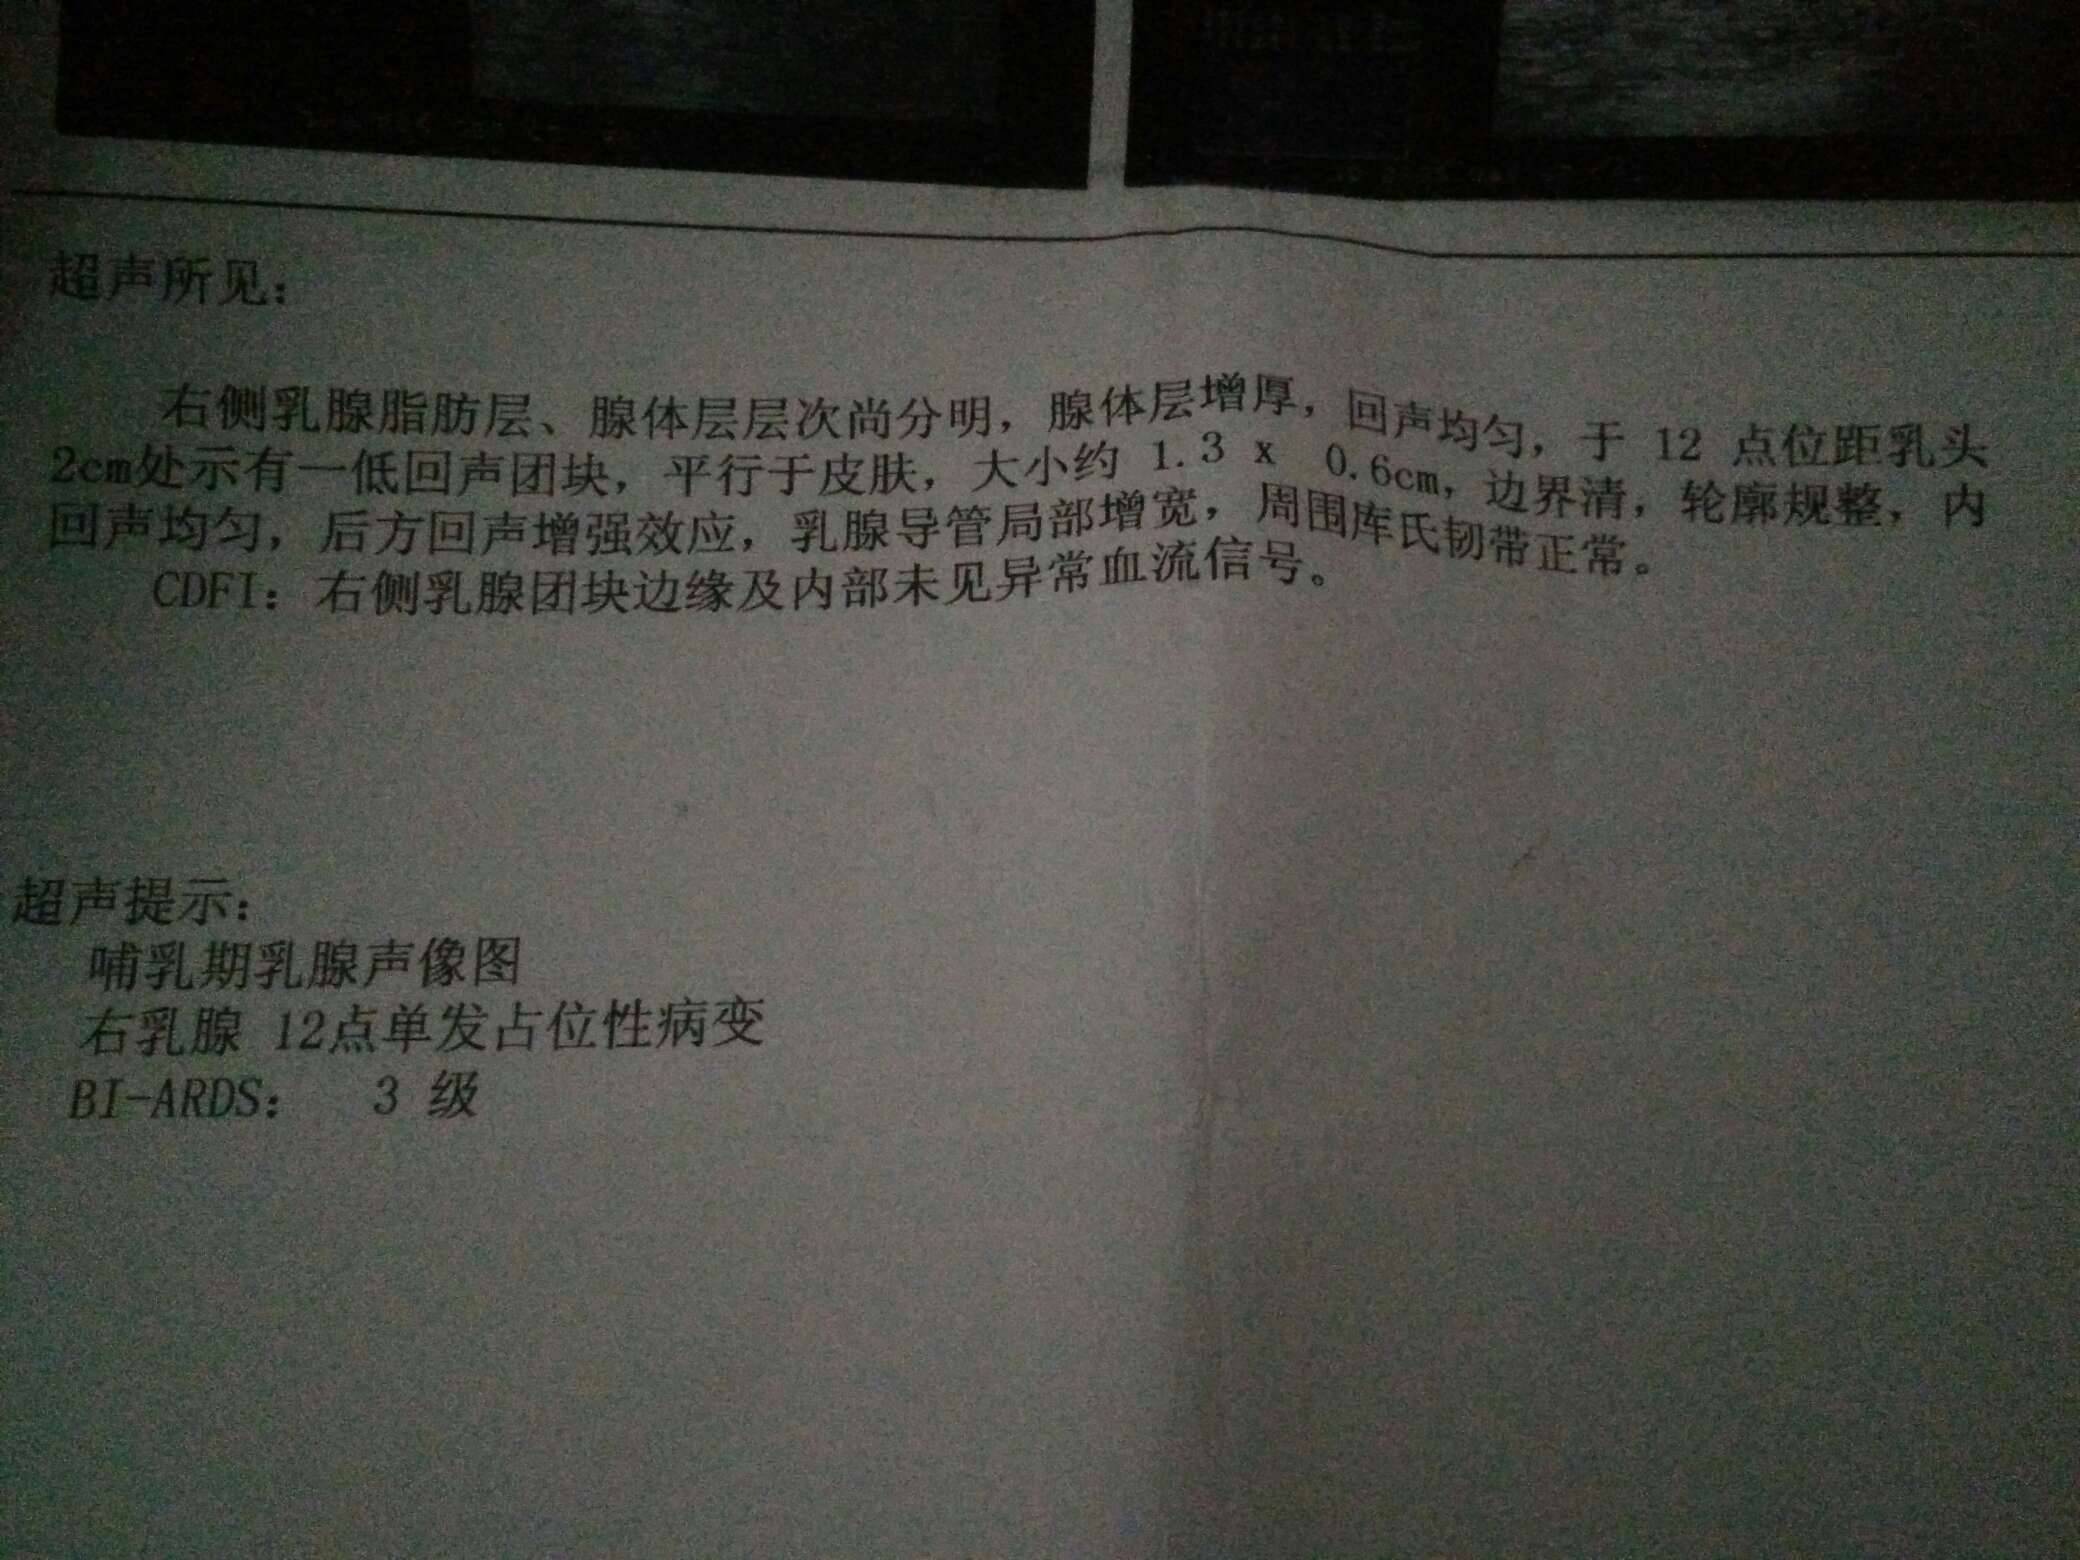 超声所见：
右侧乳腺脂肪层、腺体层层次尚分明，腺体层增厚，回声均匀，于 12 点位距乳头
2cm处示有一低回声团块，平行于皮肤，大小约 1.3 x 0.6cm，边界清，轮廓规整，内
回声均匀，后方回声增强效应，乳腺导管局部增宽，周围库氏韧带正常。
CDFI：右侧乳腺团块边缘及内部未见异常血流信号。
超声提示：
哺乳期乳腺声像图
右乳腺 12点单发占位性病变
BI-ARDS： 3 级